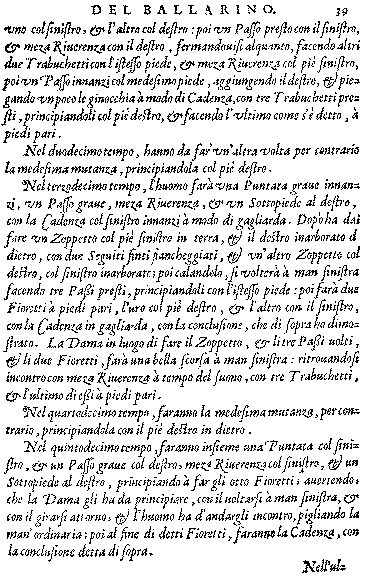 DEL BALLARINO. 39
uno col sinistro, & l'altro col destro: poi un Passo presto con il sinistro,
& meza Riuerenza con il destro, fermandouisi alquanto, facendo altri
due Trabuchetti con l'istesso piede, & meza Riuerenza col piè sinistro,
poi un' Passo innanzi col medesimo piede, aggiungendo il destro, & pie-
gando vn poco le ginocchia à modo di Cadenza, con tre Trabuchetti pre-
sti, principiandoli col piè destro, & facendo l'ultimo come s'è detto, à
piedi pari.
Nel duodecimo tempo, hanno da far' un'altra volta per contrario
la medesima mutanza, principiandola col piè destro.
Nel terzodecimo tempo, l'huomo farà una Puntata graue innan-
zi, un Passo graue, meza Riuerenza, & un Sottopiede al destro,
con la Cadenza col sinistro innanzi à modo di gagliarda. Dopò ha da
fare vn Zoppetto col piè sinistro in terra, & il destro inarborato di
dietro, con due Seguiti finti fiancheggiati, & vn'altro Zoppetto col
destro, col sinistro inarborato: poi calandolo, si volterà à man sinistra
facendo tre Passi presti, principiandoli con l'istesso piede: poi farà due
Fioretti à piedi pari, l'uno col piè destro, & l'altro con il sinistro,
con la Cadenza in gagliarda, con la conclusione, che di sopra ho dimo-
strato. La Dama in luogo di fare il Zoppetto, & li tre Passi uolti,
& li due Fioretti, farà una bella scorsa à man sinistra: ritrouandosi
incontro con meza Riuerenza à tempo del suono, con tre Trabuchetti,
& l'ultimo di essi à piedi pari.
Nel quartodecimo tempo, faranno la medesima mutanza, per con-
trario, principiandola con il piè destro in dietro.
Nel quintodecimo tempo, faranno insieme una Puntata col sini-
stro, & un Passo graue col destro; meza Riuerenza col sinistro, & un
Sottopiede al destro, principiando à far gli otto Fioretti; auertendo,
che la Dama gli ha da principiare, con il uoltarsi à man sinistra, &
con il girarsi attorno; & l'huomo ha d'andargli incontro, pigliando la
man' ordinaria: poi al fine di detti Fioretti, faranno la Cadenza, con
la conclusione detta di sopra.
Nell'ul-